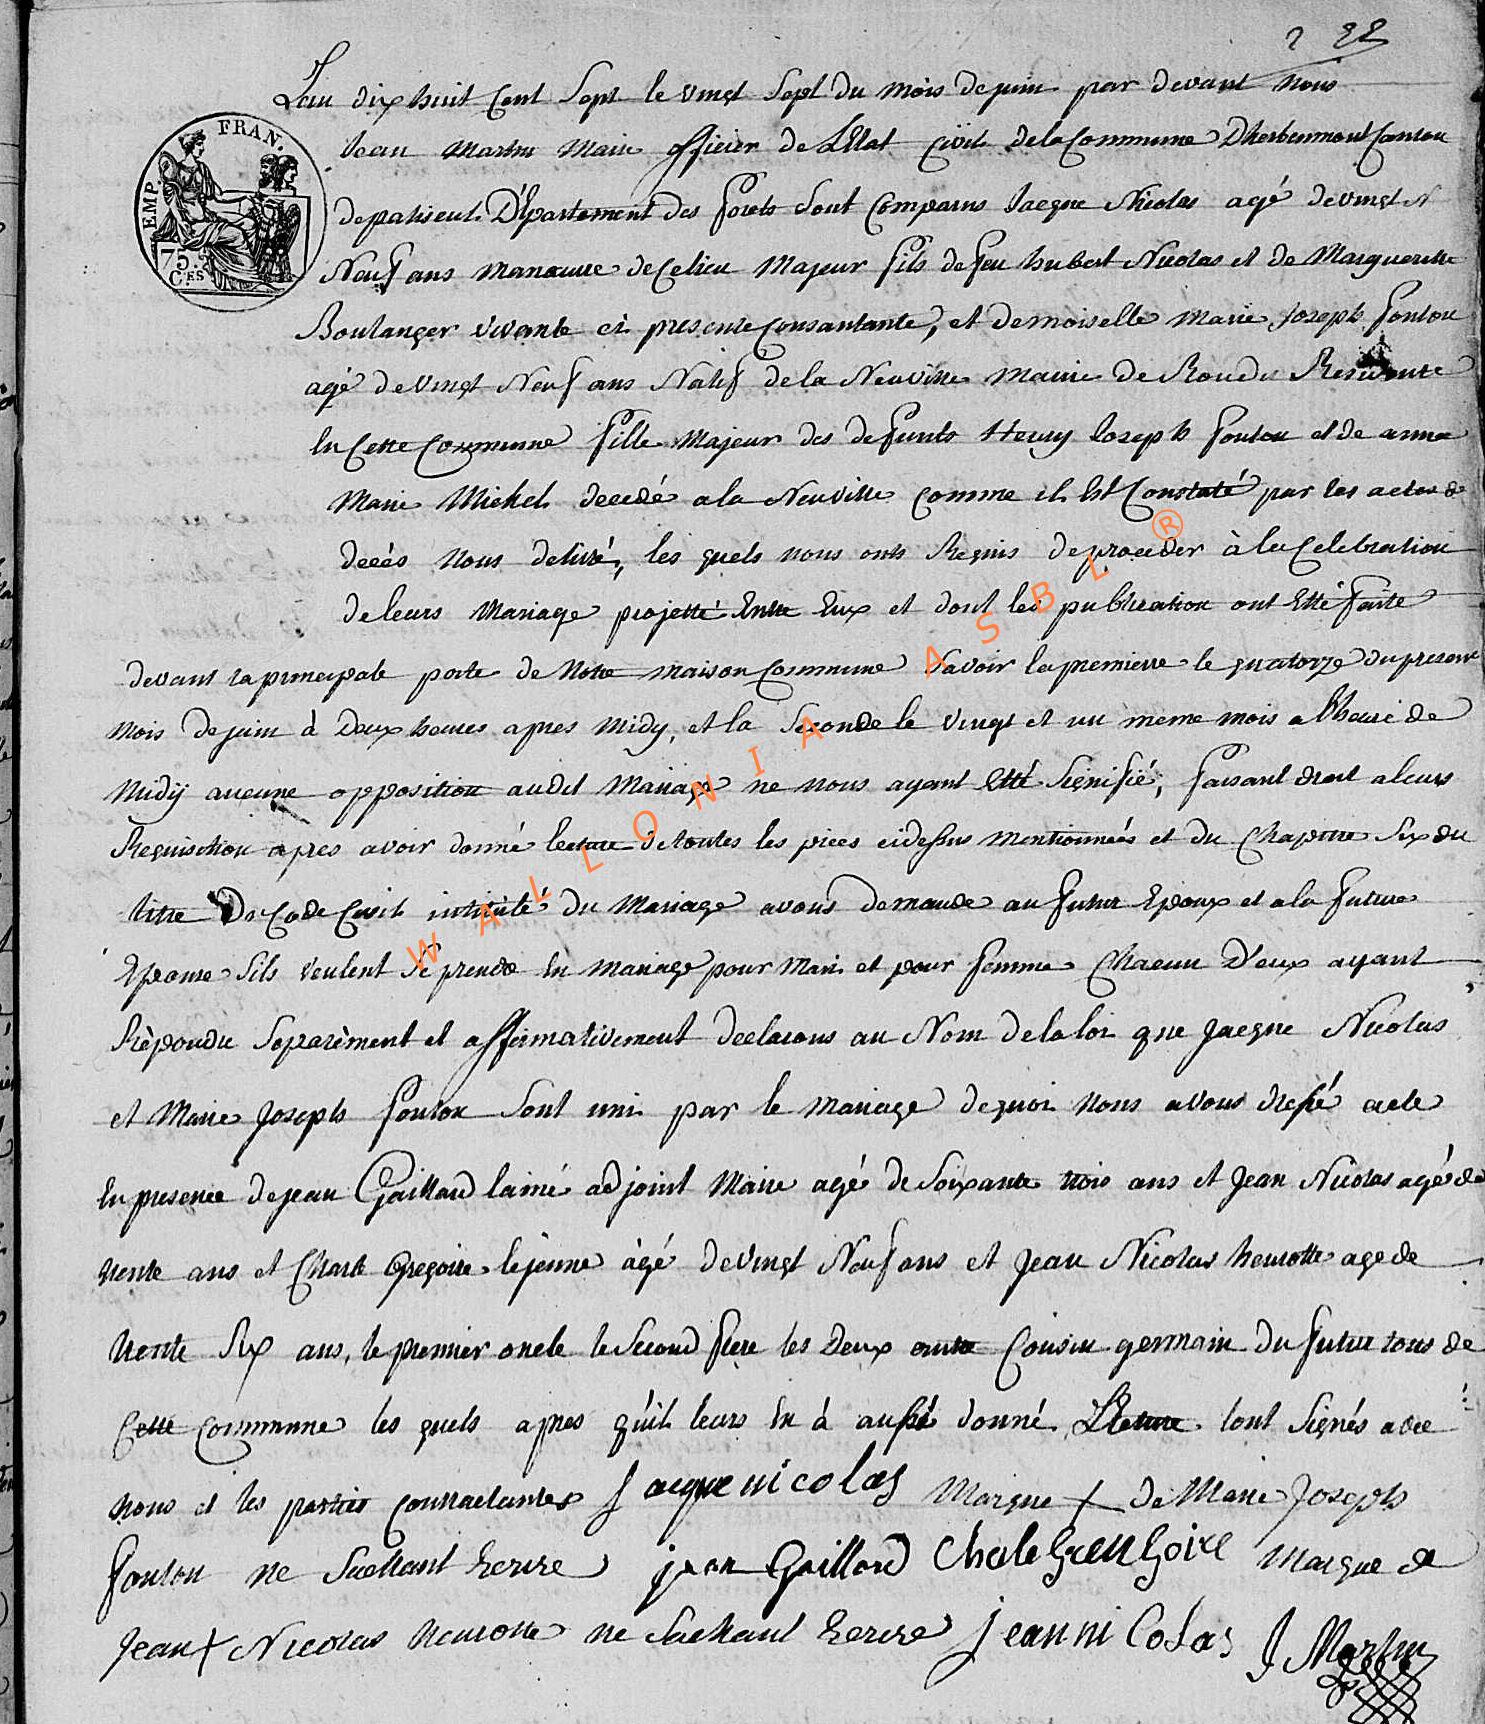 Lan dix huit Cent Sept le vingt Sept du mois de juin par devant nous
Jean Martin Maire officier de L'Etat Civil de la Commune D'herbeumont Canton
EMP. FRAN.
75. C.ES
de paliseul Département des forets Sont Comparus Jacque Nicolas agé de vingt
Neuf ans manœuvre de Ce lieu Majeur fils de feu hubert Nicolas et de Margueritte
Boulanger vivante et presente Consantante, et demoiselle Marie Joseph fonton
agé de vingt Neuf ans Natif de la Neuville Mairie de
En Cette Commune fille Majeur des defunts Henry Joseph fonton et de anne
Marie Michel decedé a la Neuville Comme il Est Constaté par les actes de
decés nous delivré, les quels nous onts Requis de proceder à la Celebration
de leurs Mariage projetté Entre Eux et dont les publication ont Etté faite
devant la principale porte de Notre maison Commune Savoir la premierre le quatorze du present
mois de juin à Deux heures apres midy, et la Seconde le vingt et un meme mois a l'heure de
Midÿ aucune opposition audit Mariage ne nous ayant Etté Signifié, faisant droit a leurs
Requisition apres avoir donné lecture de toutes les pieces cidessus mentionnées et du Chapitre Six du
titre Du Code Civil intitulé du Mariage avons demande au futur Epoux et a la future
Epouse Sils veulent Se prendre En mariage pour Mari et pour femme Chacun D'eux ayant
Rèpondu Separèment et affirmativement declarons au Nom de la loi que Jacque Nicolas
et Marie Joseph fonton Sont uni par le mariage dequoi Nous avons dressé acte
En presence de jean Gaillard lainé adjoint Maire agé de Soixante trois ans et Jean Nicolas agé de
trente ans et Charle Gregoire le jeune àgé de vingt Neuf ans et Jean Nicolas heurotte age de
trente Six ans, le premier oncle le Second frere les Deux autre Cousin germain du futur tous de
Cette Commune les quels apres quil leurs En à aussé donné Lecture tont Signés avec
nous et les parties Contractantes jacque nicolas Marque + de Marie Joseph
fonton ne Sachant Ecrire jean Gaillard Chale GrenGoire Marque de
Jean + Nicolas heurotte ne Sachant Ecrire jean ni Colas J Martin
WALLONIA ASBL ®